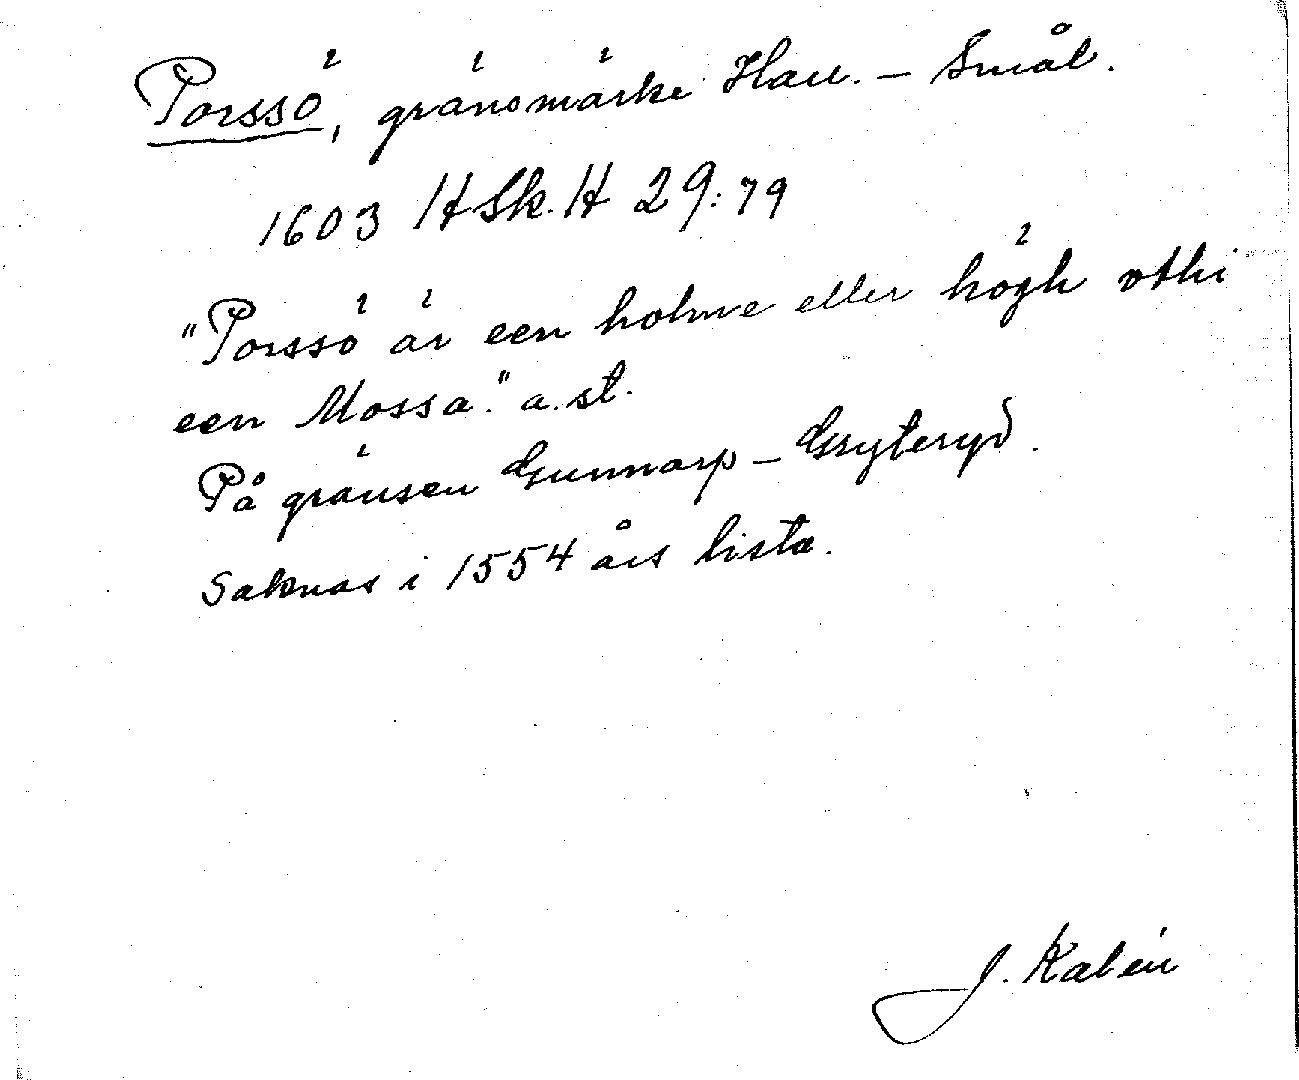 Porssö, gränsmärke Hall. – Smål.
1603 HSk. H 29:79
"Porssö är een holme eller högh vthi
een Mossa." a. st.
På gränsen Gunnarp – Gryteryd.
Saknas i 1554 års lista.
J. Kalén